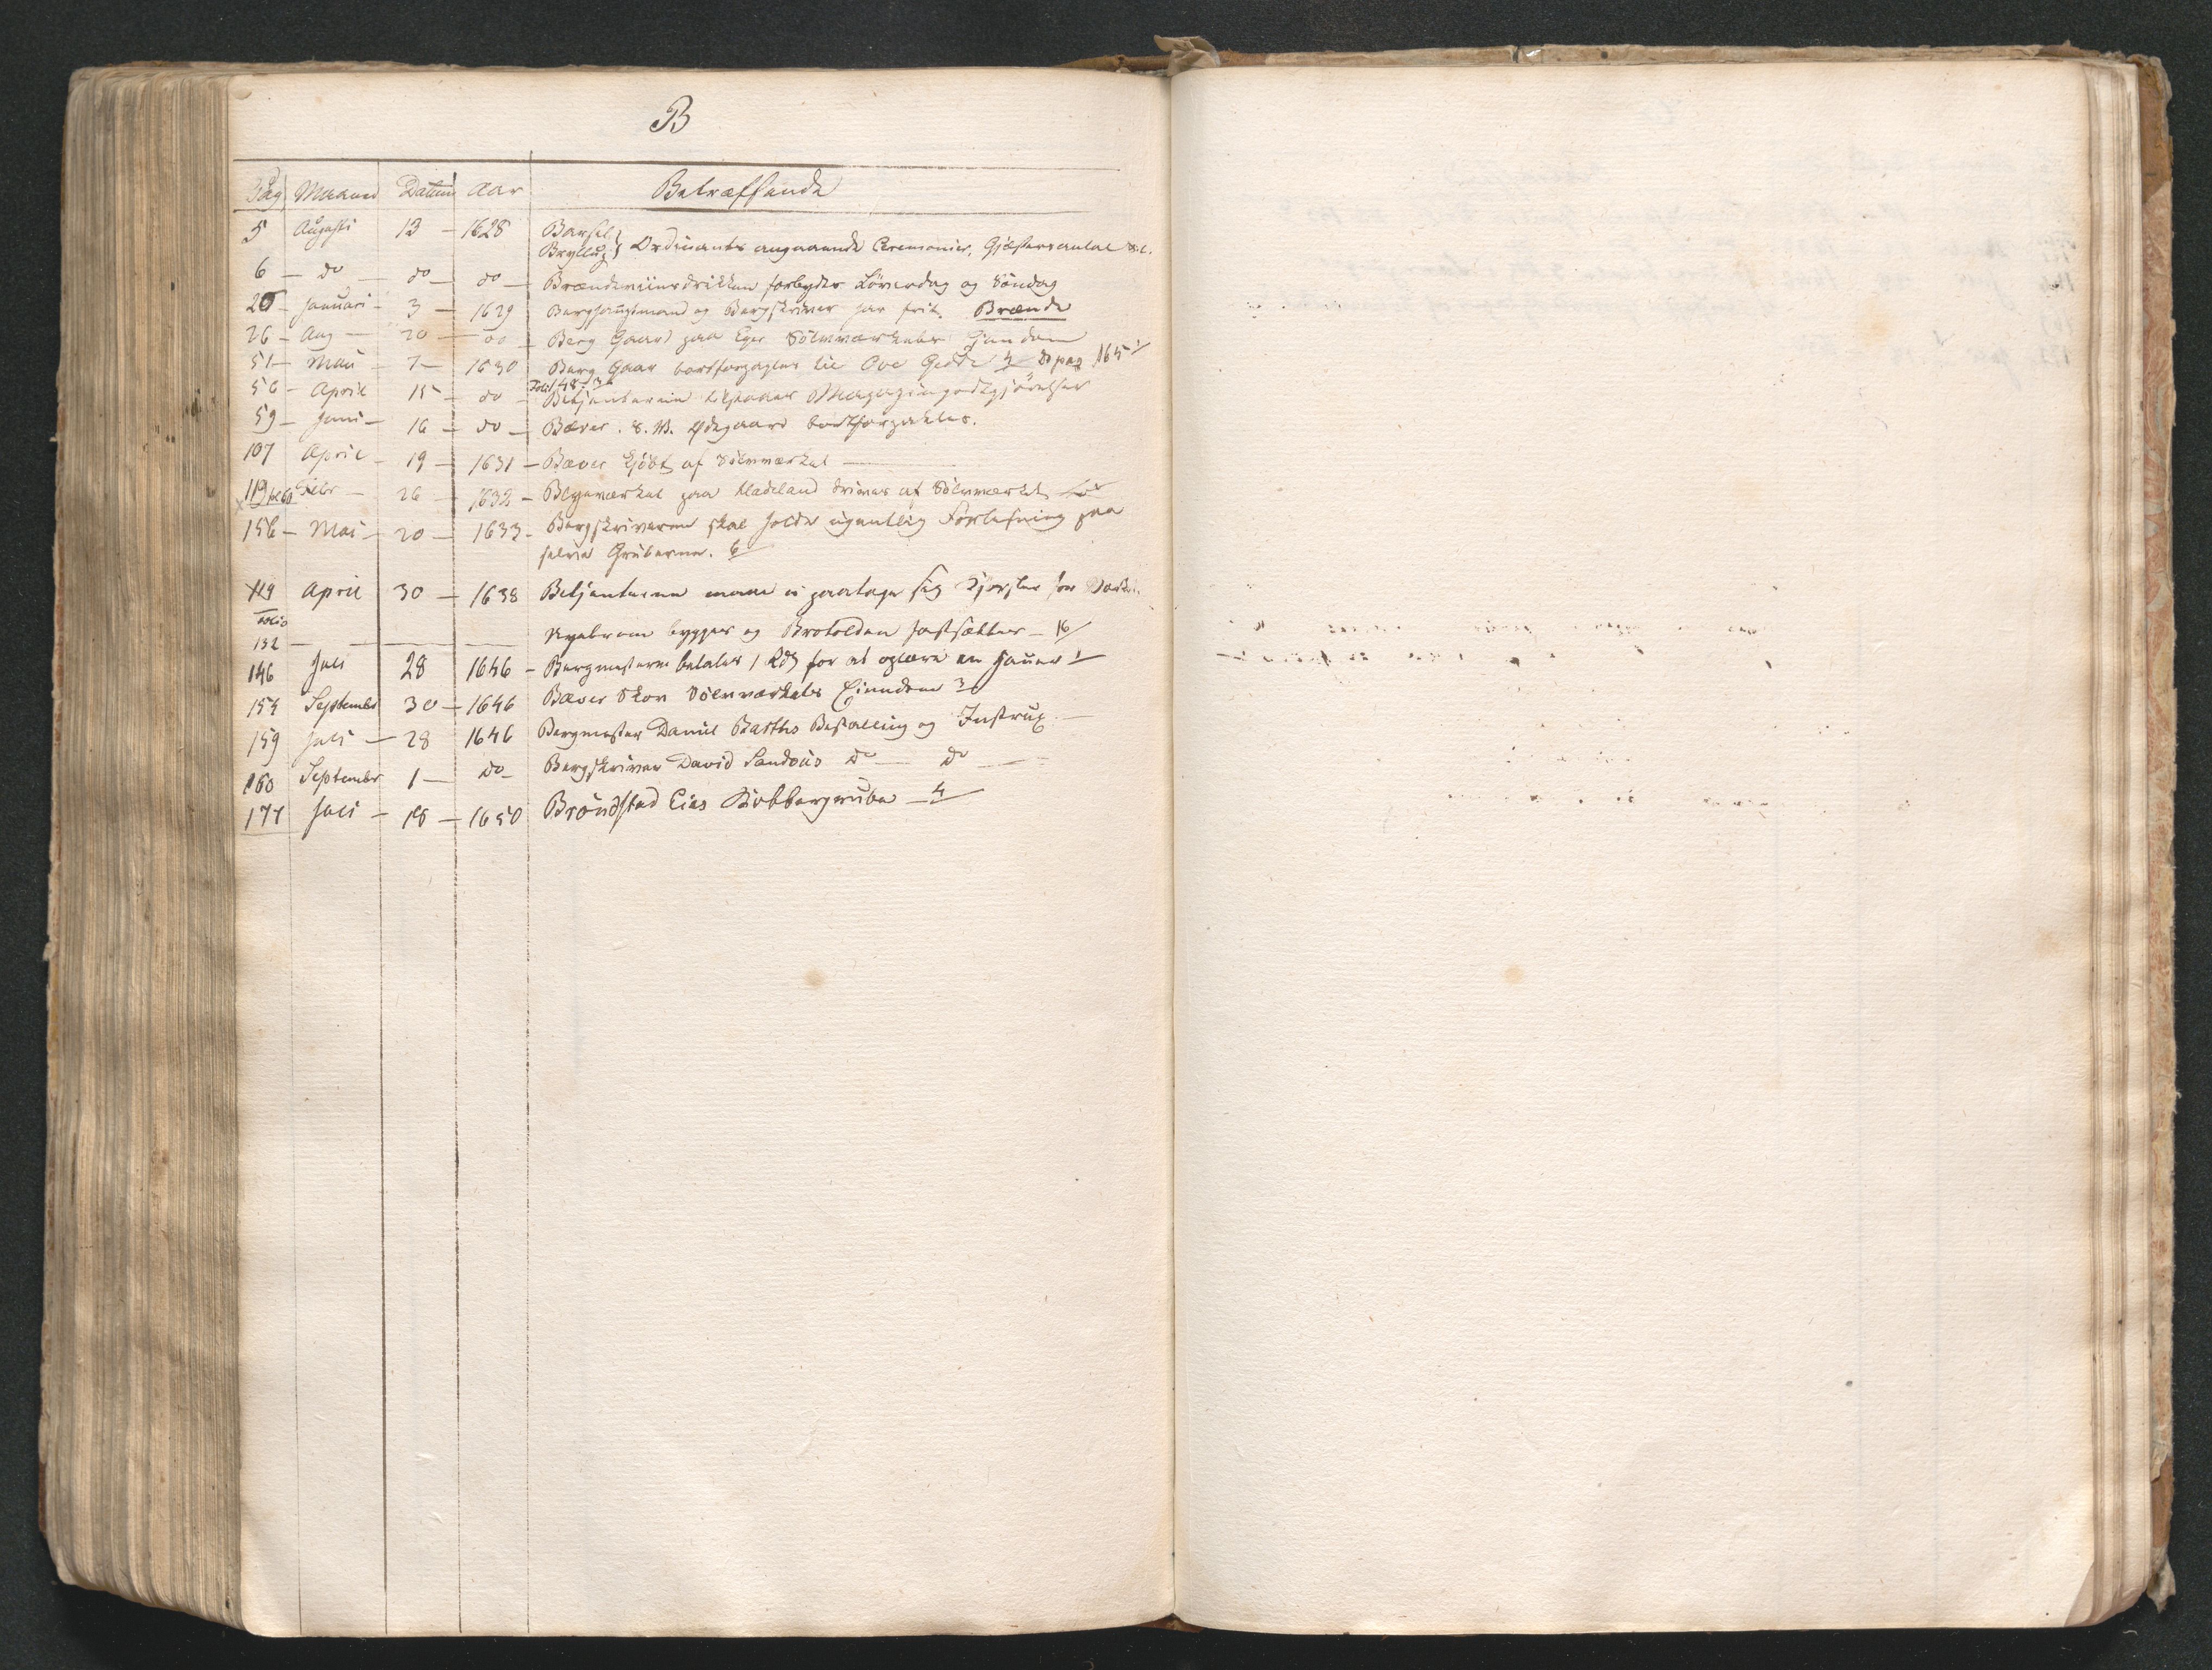 B
Pag. Maaned Datum Aar Betræffende
5 Augusti 13 – 1628 Barsel
Bryllup } Ordinants angaaende Ceremonier, Gjæsters antal &c.
6 – do – do – do – Brændeviinsdrikken forbydes Löverdag og Söndag
26 – Januari – 3 – 1629 Berghauptmand og Bergskriver har frit Brænde
26 – Aug – 20 – do – Berg Gaard paa Eger Sölvværkets Eiendom
51 – Maii – 7 – 1630 Berg Gaar bortforpagtes til Ove Gedde 4 do pag 165
56 – April 15 – do – Betjenterne tilstaaes Magazingodtgjörelse
59 – Juni – 16 – do – Bæver. S. W. Ödegaard bortforpaktes.
107 April – 19 – 1631 – Bæver kjöbt af Sölvværket –
119 Febr – 26 – 1632 – Blyeværket paa Hadeland drives af Sölvværket
156 – Mai – 20 – 1633 – Bergskriveren skal holde ugentlig Forlæsning paa
selve Gruberne. 6
119 April 30 – 1638 Betjenterne maae ei paatage sig Kjörsler for
Folio
132 – – – Nyebroen bygges og Brotolden fastsættes – 16
146 Juli 28 1646 – Bergmesteren betales 1 Rdr for at oplære en Hauer 1
154 Septembr 30 – 1646 Bæver Skov Sölvværkets Eiendom 3
159 Juli – 28 1646 Bergmester Daniel Barths Bestalling og Instrux –
160 Septembr 1 – do – Bergskriver David Sandous do – do –
177 Juli – 18 – 1650 Bröndstad Eies Kobbergrube – 4